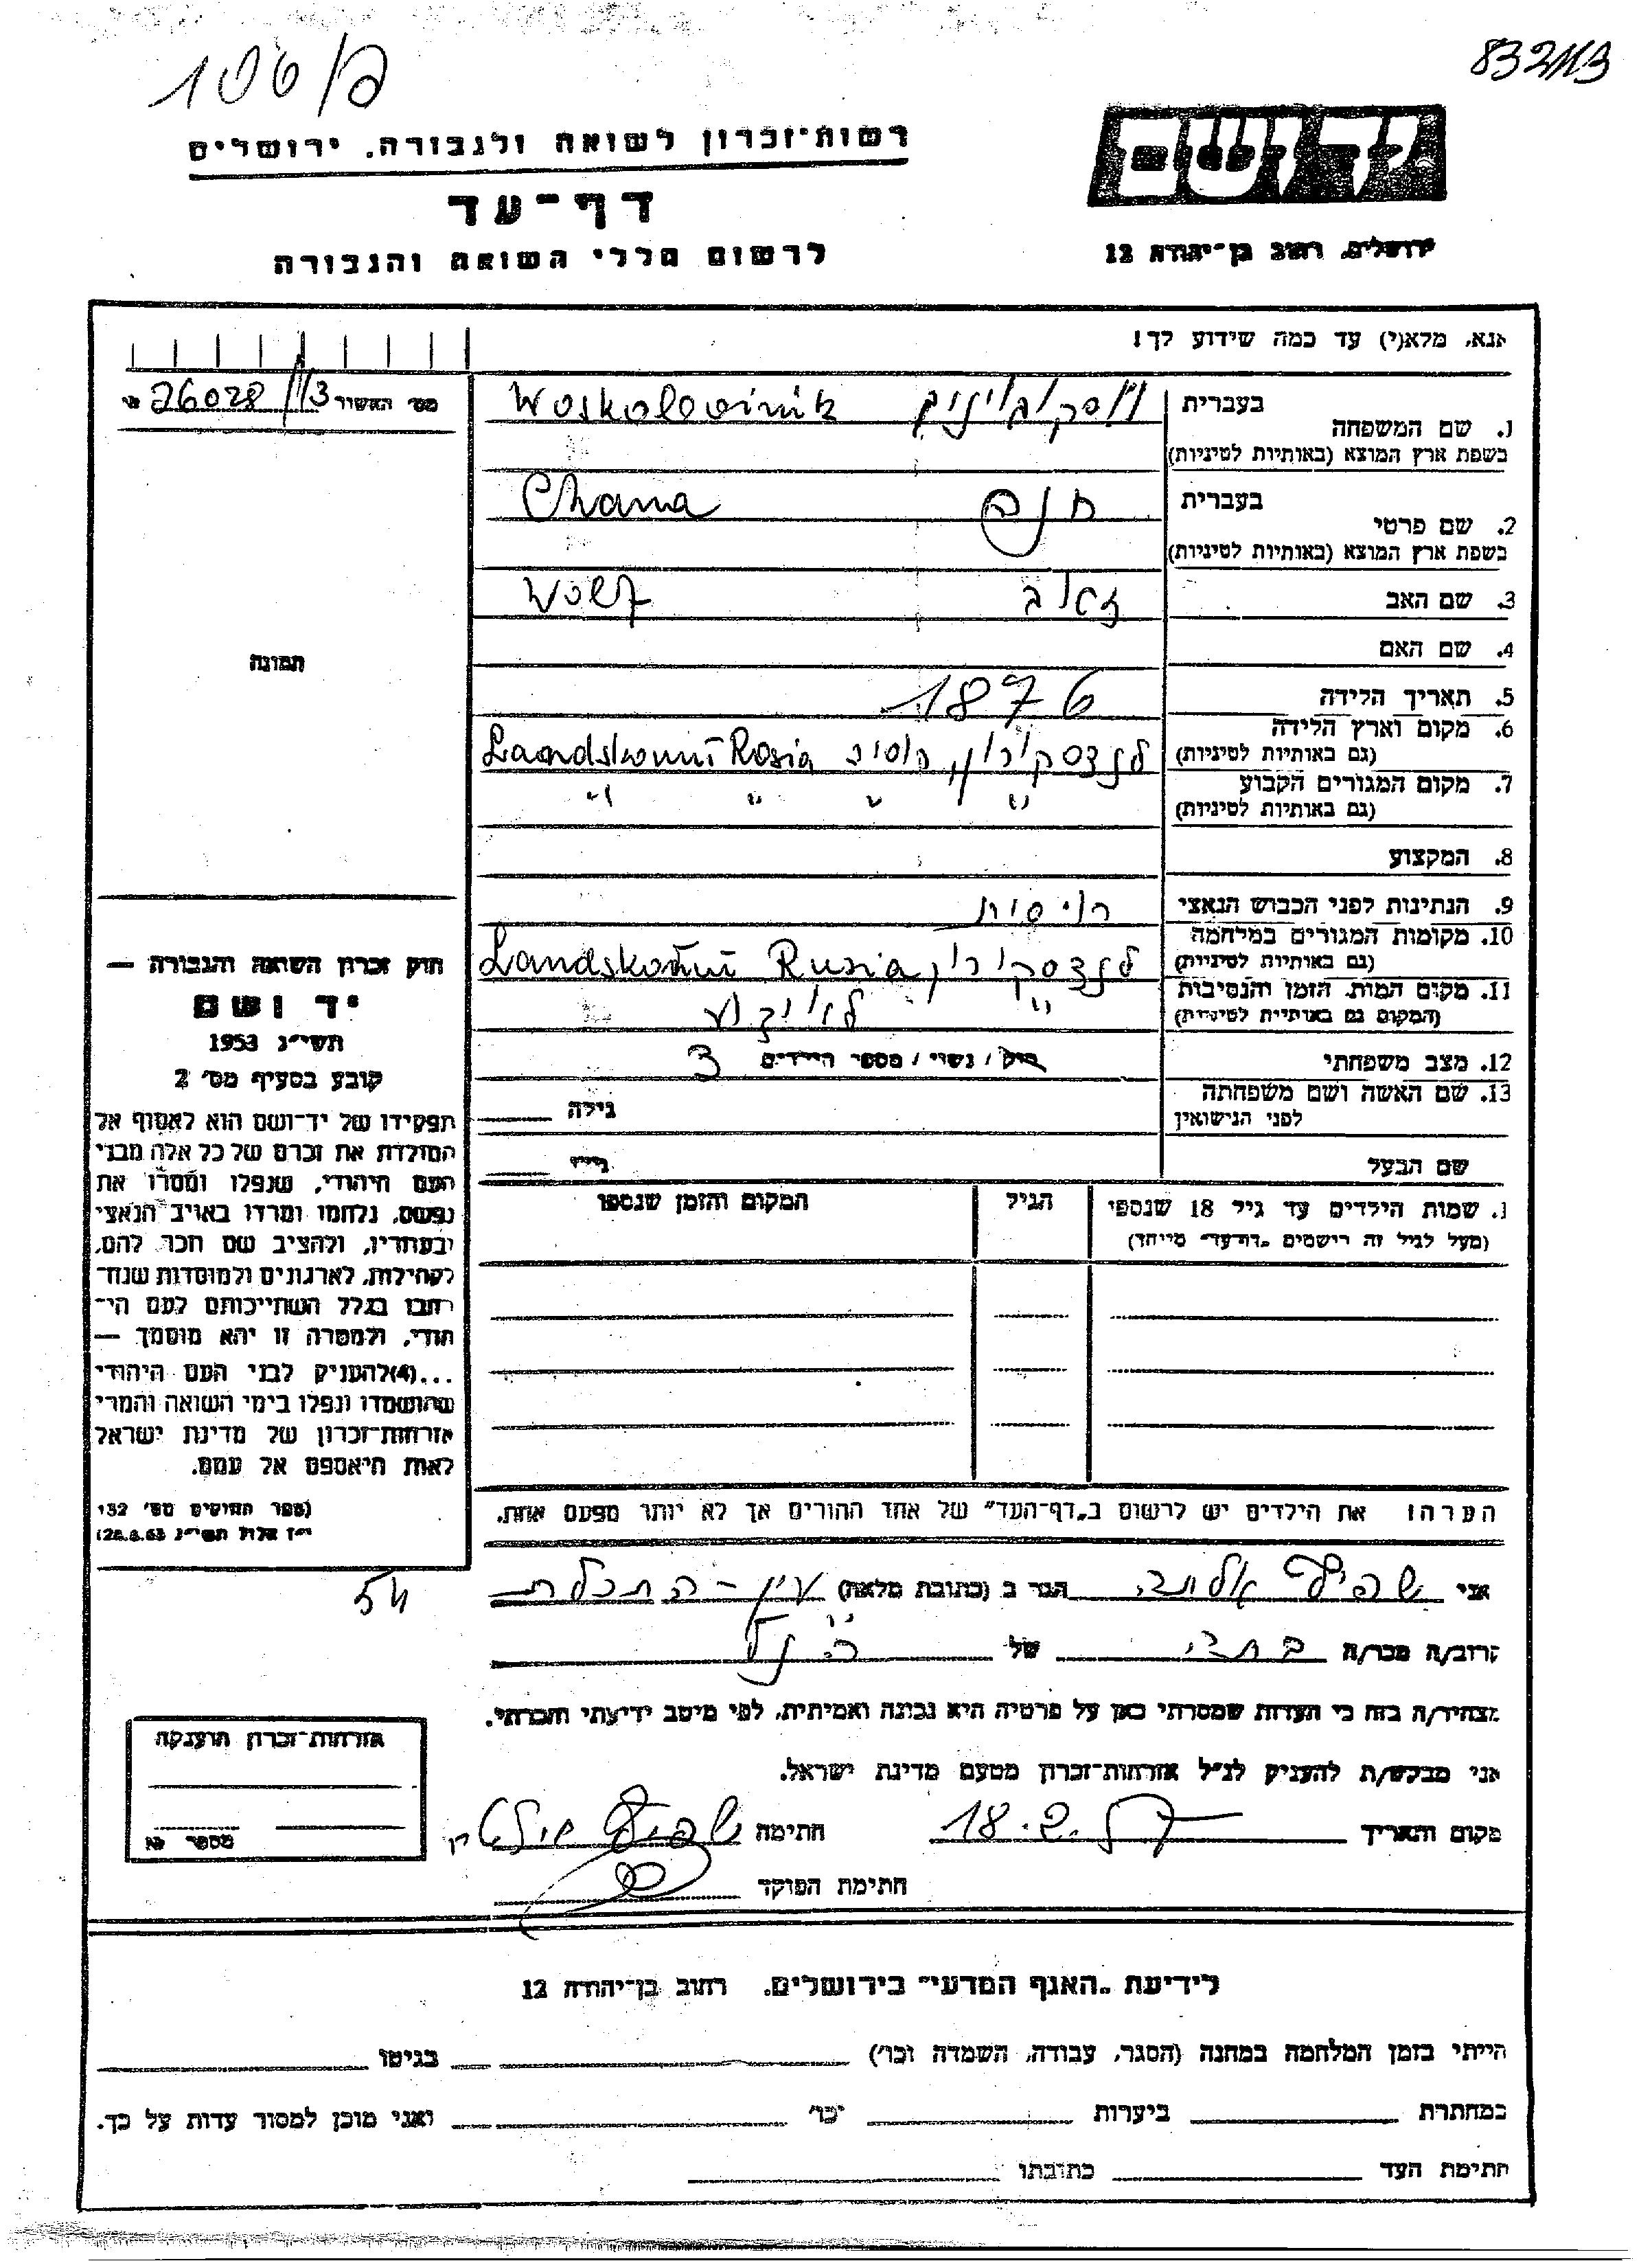 106/ק
832113
רשות-זכרון לשואה ולגבורה, ירושלים
יד ושם
דף-עד
לרשום חללי השואה והגבורה
ירושלים, רחוב בן-יהודה 12
אנא, מלא(י) עד כמה שידוע לך!
מס׳ האשיור 26028/113
1. שם המשפחה
בעברית
Woskoboinik
בשפת ארץ המוצא (באותיות לטיניות)
2. שם פרטי
בעברית חנה Chana
בשפת ארץ המוצא (באותיות לטיניות)
3. שם האב זאב Wolf
4. שם האם
5. תאריך הלידה 1876
6. מקום וארץ הלידה
(גם באותיות לטיניות) לנדסקורון, רוסיה Rosia
7. מקום המגורים הקבוע
(גם באותיות לטיניות) " " " "
8. המקצוע
9. הנתינות לפני הכבוש הנאצי רוסית
10. מקומות המגורים במלחמה
(גם באותיות לטיניות) לנדסקורון Rusia
11. מקום המות, הזמן והנסיבות
(המקום גם באותיות לטיניות) " לא ידוע
12. מצב משפחתי רווק / נשוי / מספר הילדים 3
13. שם האשה ושם משפחתה
לפני הנישואין גילה
שם הבעל גילו
תמונה
חוק זכרון השואה והגבורה —
יד ושם
תשי״ג 1953
קובע בסעיף מס׳ 2
תפקידו של יד-ושם הוא לאסוף אל
המולדת את זכרם של כל אלה מבני
העם היהודי, שנפלו ומסרו את
נפשם, נלחמו ומרדו באויב הנאצי
ובעוזריו, ולהציב שם וזכר להם,
לקהילות, לארגונים ולמוסדות שנח-
רבו בגלל השתייכותם לעם הי-
הודי, ולמטרה זו יהא מוסמך —
...(4)להעניק לבני העם היהודי
שהושמדו ונפלו בימי השואה והמרי
אזרחות-זכרון של מדינת ישראל
לאות היאספם אל עמם.
(ספר החוקים מס׳ 132
י״ז אלול תשי״ג
54
1. שמות הילדים עד גיל 18 שנספו
(מעל לגיל זה רישמים „דף-עד״ מיוחד)
הגיל
המקום והזמן שנספו
הערה: את הילדים יש לרשום ב„דף-העד״ של אחד ההורים אך לא יותר מפעם אחת.
אני הגר ב (כתובת מלאה) עין-התכלת
קרוב/ה מכר/ה של הנ״ל
מצהיר/ה בזה כי העדות שמסרתי כאן על פרטיה היא נכונה ואמיתית, לפי מיטב ידיעתי והכרתי.
אני מבקש/ת להעניק לנ״ל אזרחות-זכרון מטעם מדינת ישראל.
מקום ותאריך 18.2. חתימה
חתימת הפוקד
אזרחות-זכרון הוענקה
מספר
לידיעת „האגף המדעי״ בירושלים, רחוב בן-יהודה 12
הייתי בזמן המלחמה במחנה (הסגר, עבודה, השמדה וכו׳) בגיטו
במחתרת ביערות וכו׳ ואני מוכן למסור עדות על כך.
חתימת העד כתובתו